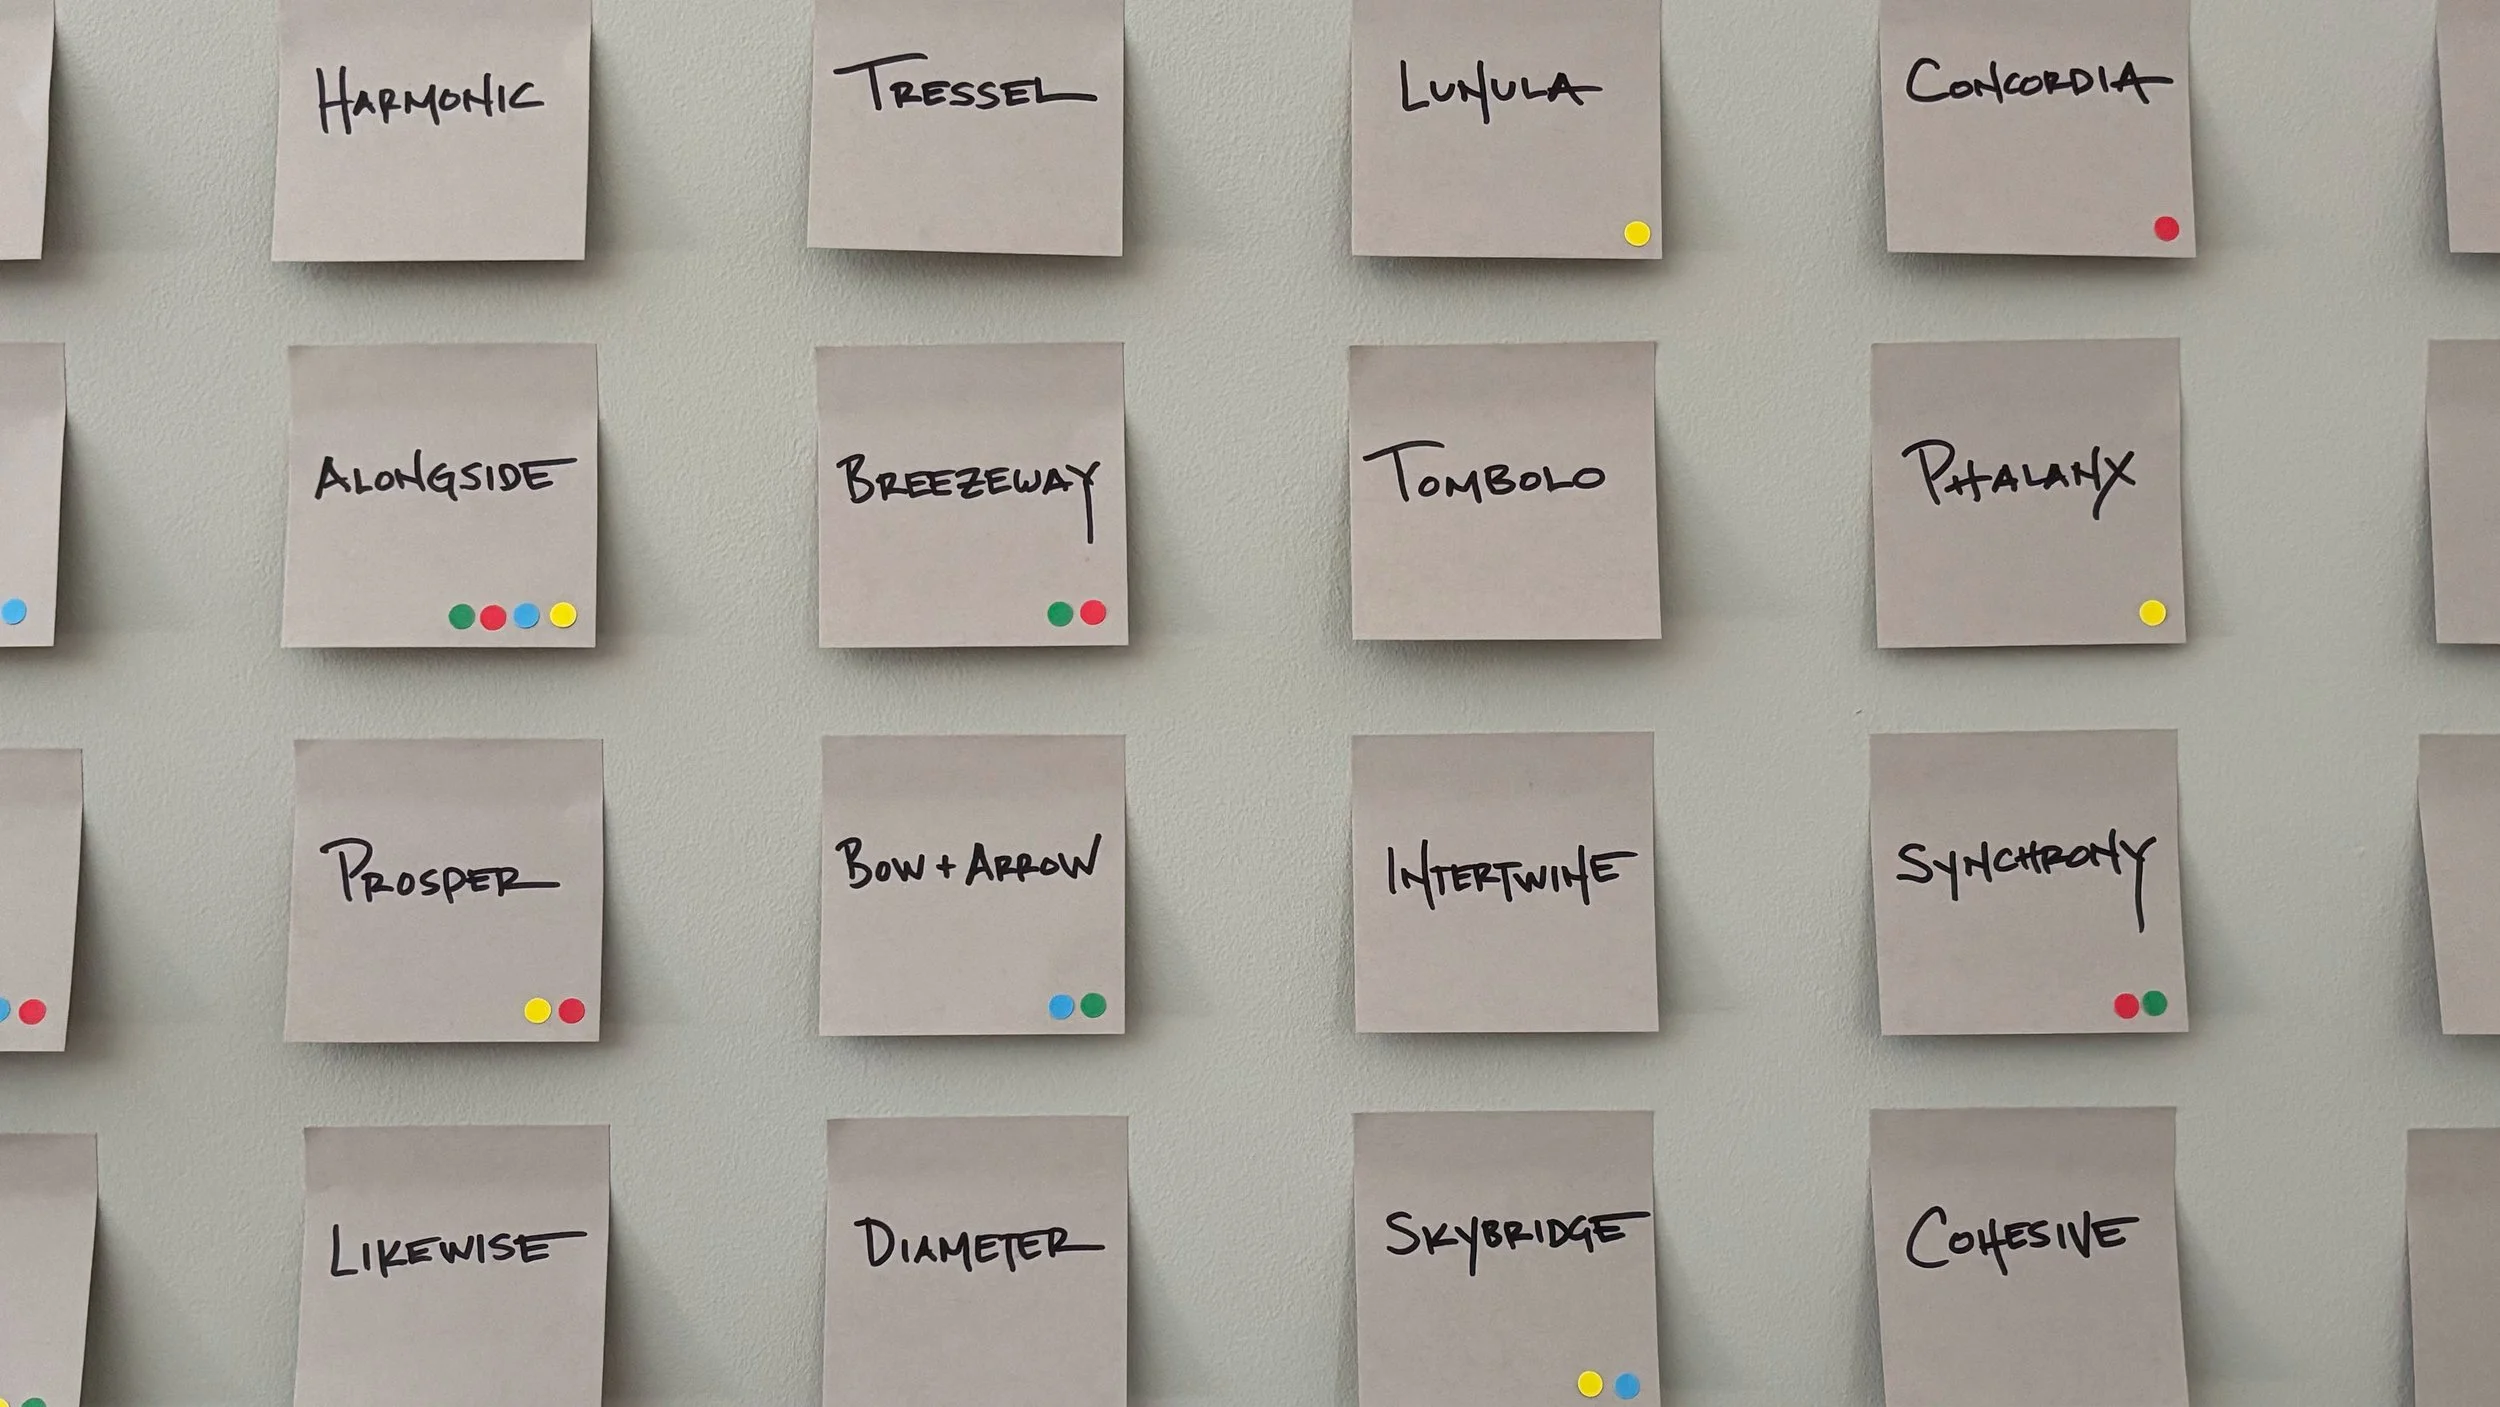 HARMONIC
TRESSEL
LUNULA
CONCORDIA
ALONGSIDE
BREEZEWAY
TOMBOLO
PHALANX
PROSPER
BOW + ARROW
INTERTWINE
SYNCHRONY
LIKEWISE
DIAMETER
SKYBRIDGE
COHESIVE